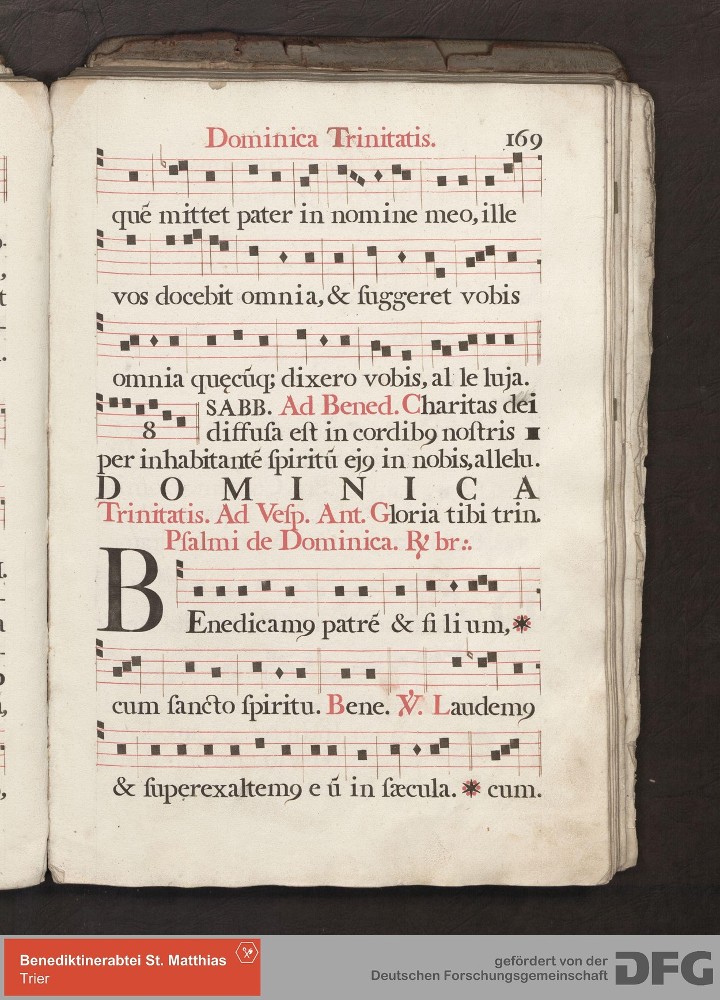 Dominica Trinitatis. 169
quē mittet pater in nomine meo, ille
vos docebit omnia, & ſuggeret vobis
omnia quęcūq; dixero vobis, al le luja.
SABB. Ad Bened. Charitas dei
8 diffuſa eſt in cordibꝯ noſtris
per inhabitantē ſpiritū ejꝯ in nobis, allelu.
DOMINICA
Trinitatis. Ad Veſp. Ant. Gloria tibi trin.
Pſalmi de Dominica. ℟ br:.
BEnedicamꝯ patrē & fi li um, *
cum ſancto ſpiritu. Bene. ℣. Laudemꝯ
& ſuperexaltemꝯ e ū in ſæcula. * cum.
Benediktinerabtei St. Matthias
Trier
gefördert von der
Deutschen Forschungsgemeinschaft DFG